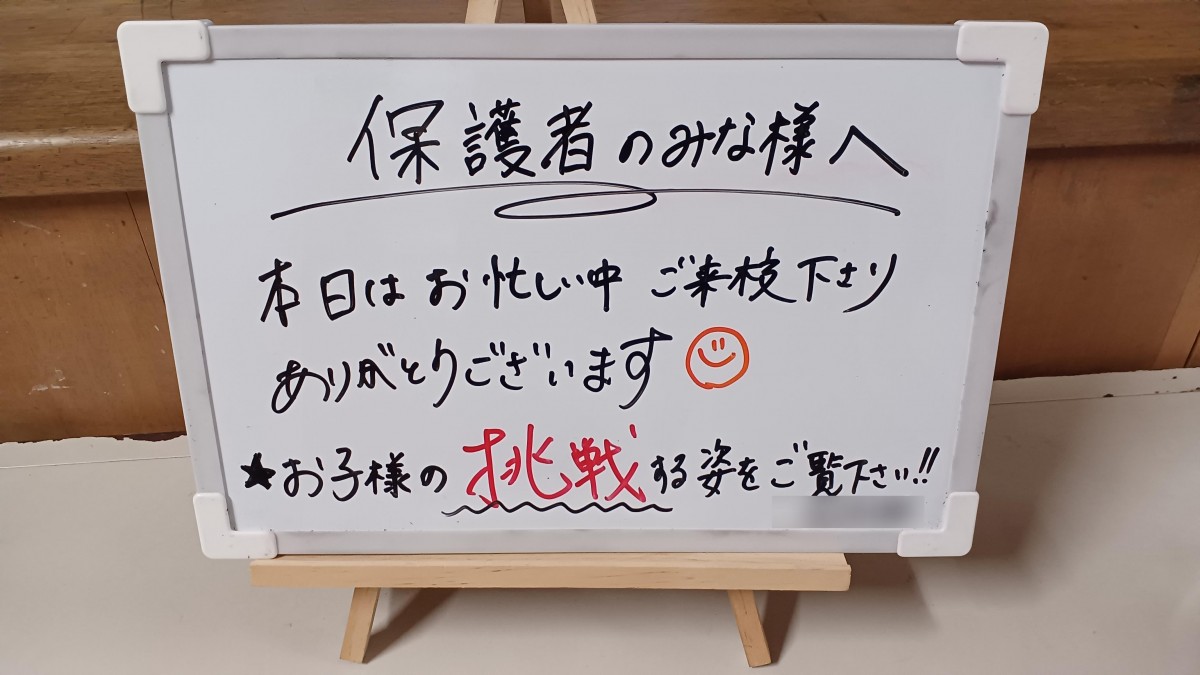 保護者のみな様へ
本日はお忙しい中 ご来校下さり
ありがとうございます
★お子様の挑戦する姿をご覧下さい!!